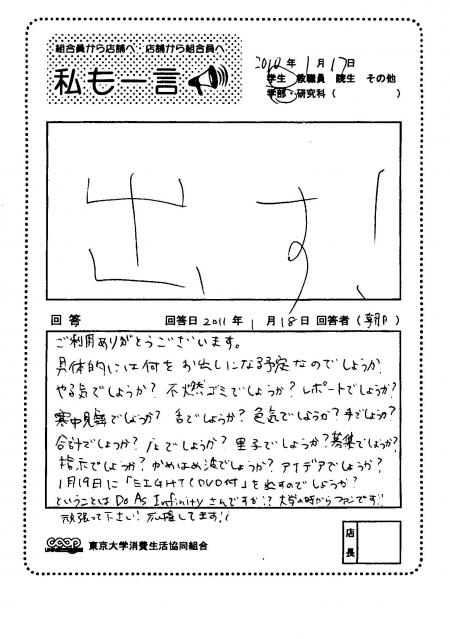 組合員から店舗へ 店舗から組合員へ
私も一言
年 1月17日
学生 教職員 院生 その他
学部・研究科( )
出す!
回答 回答日 2011年 1月18日 回答者( )
ご利用ありがとうございます。
具体的には何をお出しになる予定なのでしょうか
やる気でしょうか? 不燃ゴミでしょうか? レポートでしょうか?
寒中見舞でしょうか? 舌でしょうか? 色気でしょうか? 手でしょうか?
合計でしょうか? でしょうか? 里子でしょうか? 募集でしょうか?
指示でしょうか? かめはめ波でしょうか? アイデアでしょうか?
1月19日に「EIGHT(DVD付)を出すのでしょうか?
ということは Do As Infinity さんですか!? 大学の時からファンです!!
頑張って下さい! 応援してます!!
coop 東京大学消費生活協同組合
店長